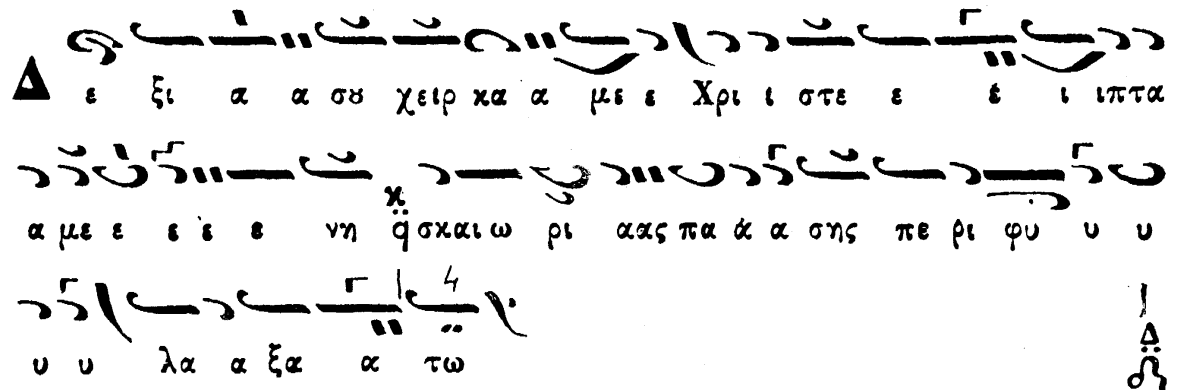 Δ ε ξι α α σȣ χειρ κα α με ε Χρι ι στε ε έ ι ιπτα
α με ε ε ε ε ε νη q̈ σκαι ω ρι α ας πα ά α σης πε ρι φυ υ υ
υ υ λα α ξα α τω Δ